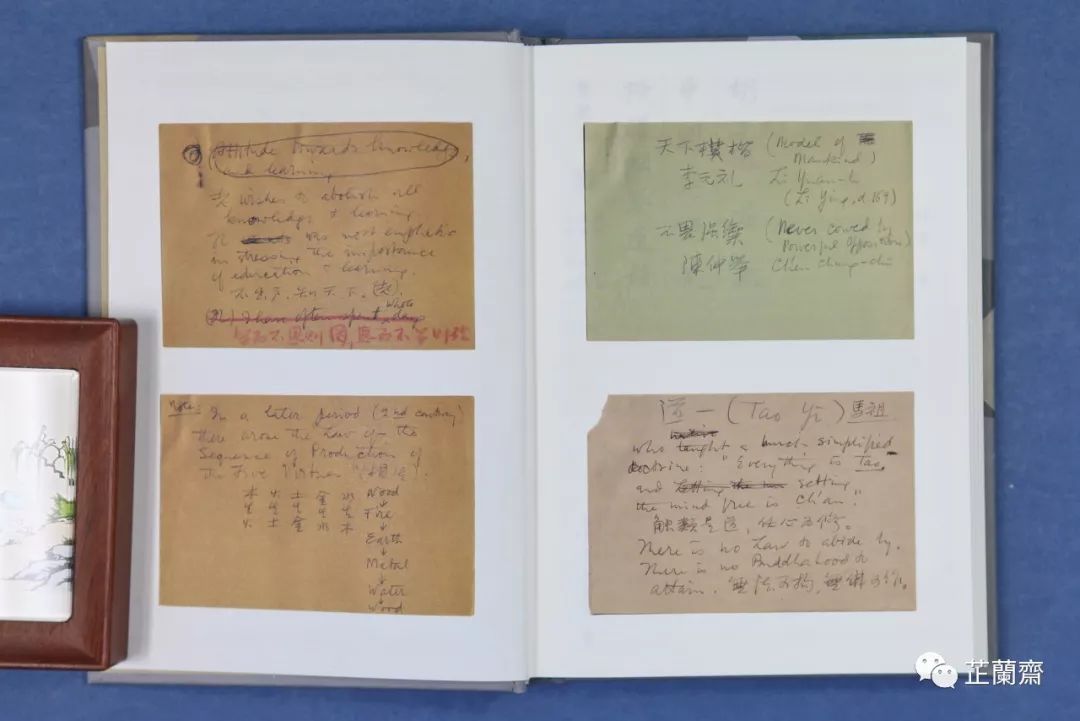 Attitude towards knowledge,
and learning
老 wishes to abolish all
knowledge & learning.
孔 was most emphatic
in stressing the importance
of education & learning.
不出户,知天下。(老)
(孔) I have often spent whole days
学而不思则罔,思而不学则殆
Note: In a later period (2nd century)
there arose the Law of the
Sequence of Production of
the Five Virtues "相生".
木 火 土 金 水 Wood
生 生 生 生 生 Fire
火 土 金 水 木
Earth
Metal
Water
Wood
天下模楷 (Model of
Mankind)
李元礼 Li Yuan-li
(Li Ying, d. 169)
不畏强禦 (Never cowed by
Powerful Opposition)
陳仲举 Chen Chung-chü
道一 (Tao Yi) 馬祖
who taught a much simplified
doctrine: "Everything is Tao,
and setting
the mind free is Ch'an."
触類是道,任心为修。
There is no Law to abide by.
There is no Buddhahood to
attain. 無法可拘,無佛可作.
芷蘭齋